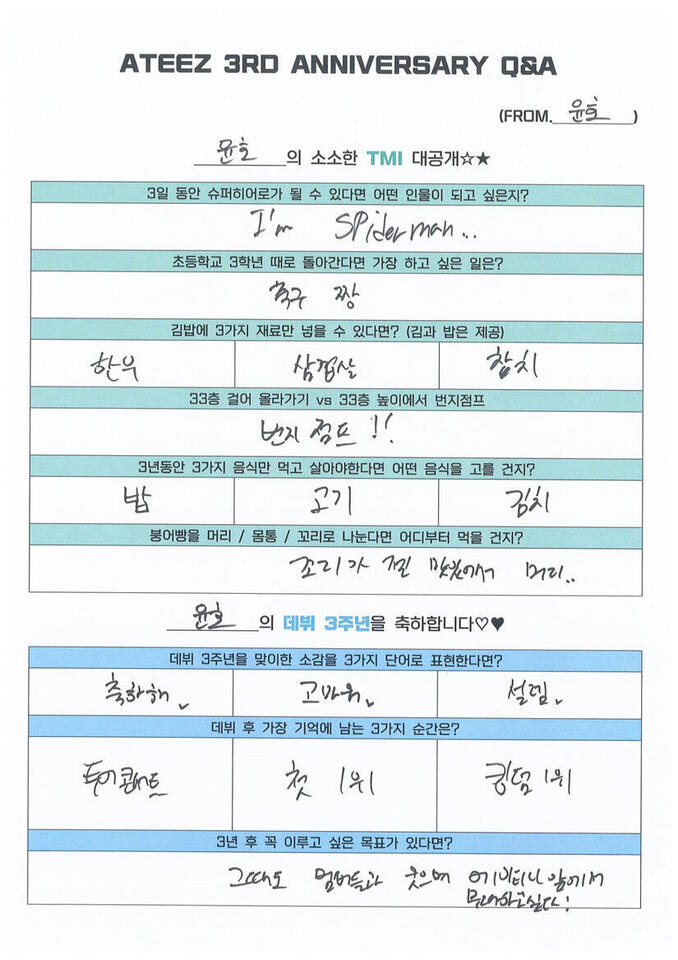 ATEEZ 3RD ANNIVERSARY Q&A
(FROM. 윤호 )
윤호 의 소소한 TMI 대공개☆★
3일 동안 슈퍼히어로가 될 수 있다면 어떤 인물이 되고 싶은지?
I'm SPiderman..
초등학교 3학년 때로 돌아간다면 가장 하고 싶은 일은?
축구 짱
김밥에 3가지 재료만 넣을 수 있다면? (김과 밥은 제공)
한우 삼겹살 참치
33층 걸어 올라가기 vs 33층 높이에서 번지점프
번지 점프 !!
3년동안 3가지 음식만 먹고 살아야한다면 어떤 음식을 고를 건지?
밥 고기 김치
붕어빵을 머리 / 몸통 / 꼬리로 나눈다면 어디부터 먹을 건지?
꼬리가 찐 맛있어서 머리..
윤호 의 데뷔 3주년을 축하합니다♡♥
데뷔 3주년을 맞이한 소감을 3가지 단어로 표현한다면?
축하해 고마워 설렘
데뷔 후 가장 기억에 남는 3가지 순간은?
투어콘서트 첫 1위 킹덤 1위
3년 후 꼭 이루고 싶은 목표가 있다면?
그때도 멤버들과 웃으며 에이티니 앞에서
무대하고싶다!